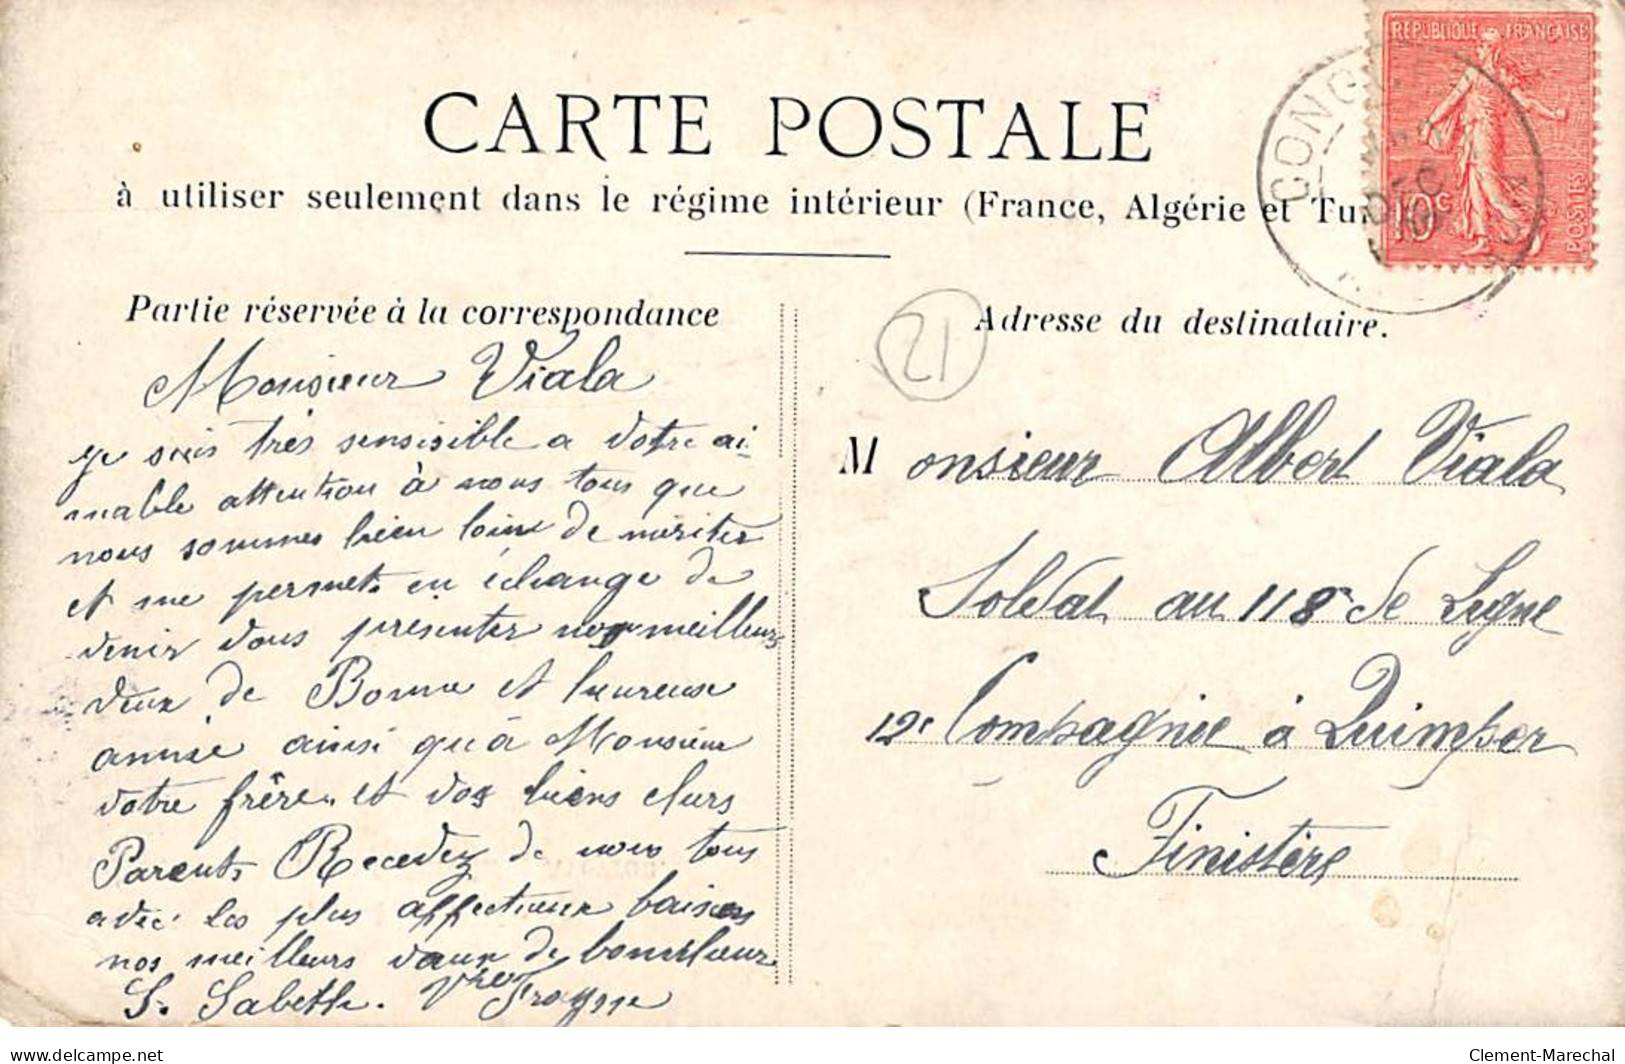 REPUBLIQUE FRANCAISE
CARTE POSTALE
CONG
DEC
10c
POSTES
à utiliser seulement dans le régime intérieur (France, Algérie et Tu
Partie réservée à la correspondance
21
Adresse du destinataire.
Monsieur Viala
je suis très sensisible a votre ai-
mable attention à nous tous que
nous sommes bien loin de mériter
et me permets en échange de
venir vous présenter nos meilleurs
veux de Bonne et heureuse
année ainsi qu'à Monsieur
votre frère et vos biens chers
Parents Recevez de nous tous
avec les plus affectueux baisers
nos meilleurs vœux de bonheur
S. Sabeth. Vve
Monsieur Albert Viala
Soldat au 118 de Ligne
12e Compagnie à Quimper
Finistère
delcampe.net
Clement-Marechal